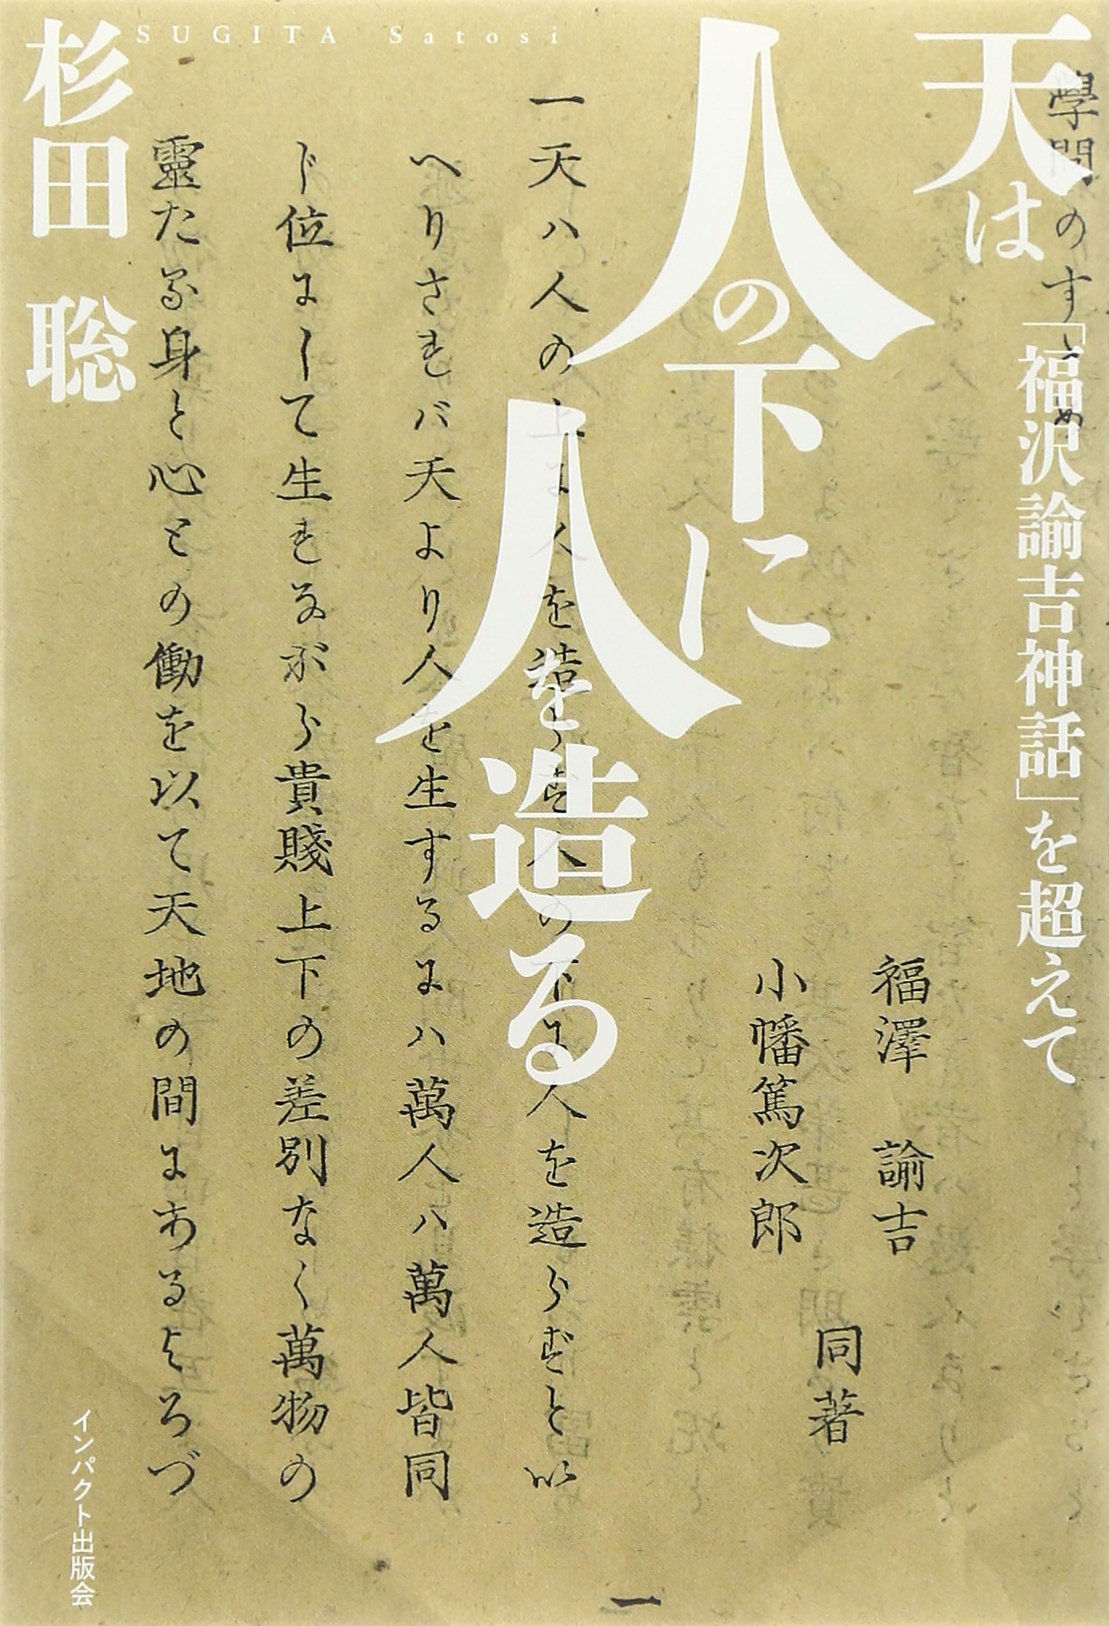 天は
人の下に
人を造る
「福沢諭吉神話」を超えて
SUGITA Satosi
杉田 聡
インパクト出版会
學問のすゝめ
福澤 諭吉
小幡篤次郎
同著
一天ハ人の上に人を造らず人の下に人を造らずと以
へりされバ天より人を生するにハ萬人ハ萬人皆同
じ位にして生れながら貴賤上下の差別なく萬物の
靈たる身と心との働を以て天地の間にあるよろづ
一